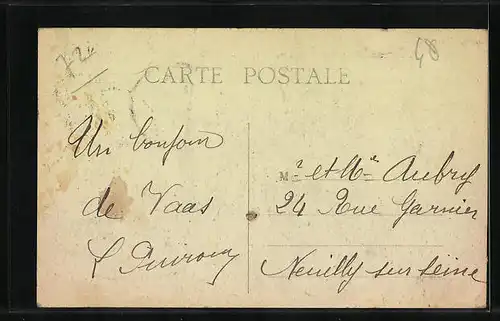 72
48
CARTE POSTALE
Un bonjour
de Vaas
M r et Me Aubry
24 Rue Garnier
Neuilly sur Seine